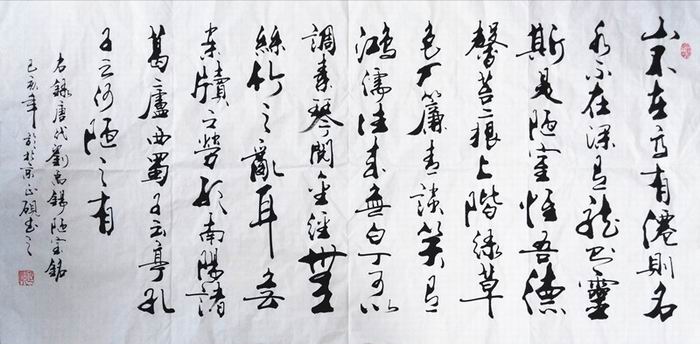 山不在高有僊則名
水不在深有龍則靈
斯是陋室惟吾德
馨苔痕上階綠草
色入簾青談笑有
鴻儒往來無白丁可以
調素琴閱金經無
絲竹之亂耳無
案牘之勞形南陽諸
葛廬西蜀子云亭孔
子云何陋之有
右錄唐代劉禹錫陋室銘
己亥年於北京正碩書之